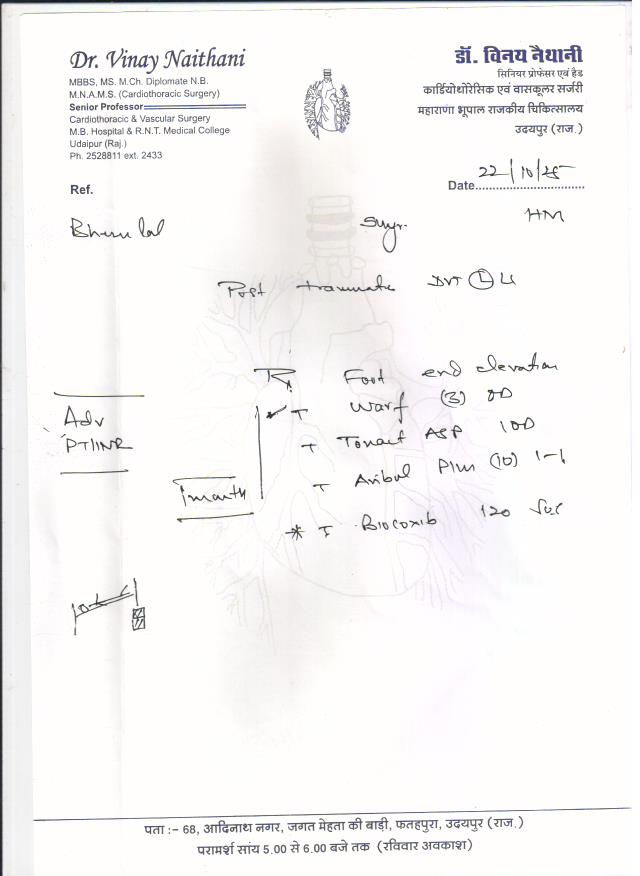 Dr. Vinay Naithani
MBBS, MS. M.Ch. Diplomate N.B.
M.N.A.M.S. (Cardiothoracic Surgery)
Senior Professor
Cardiothoracic & Vascular Surgery
M.B. Hospital & R.N.T. Medical College
Udaipur (Raj.)
Ph. 2528811 ext. 2433
डॉ. विनय नैथानी
सिनियर प्रोफेसर एवं हैड
कार्डियोथोरेसिक एवं वासकूलर सर्जरी
महाराणा भूपाल राजकीय चिकित्सालय
उदयपुर (राज.)
Ref.
Date 22/10/25
HM
Post traumatic DVT (L) LL
Rx Foot end elevation
T Warf (3) OD
T Tonact ASP 1OD
T Plus (10) 1-1
* T Biocoxib 120
Adv
PT/INR
1 month
पता :- 68, आदिनाथ नगर, जगत मेहता की बाड़ी, फतहपुरा, उदयपुर (राज.)
परामर्श सांय 5.00 से 6.00 बजे तक (रविवार अवकाश)